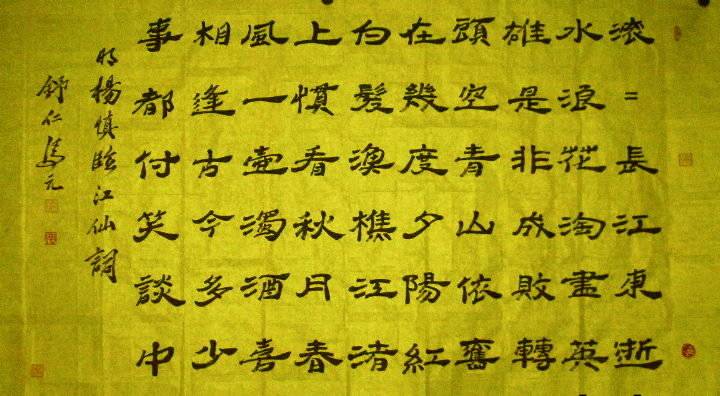 滚=長江東逝
水浪花淘盡英
雄是非成敗轉
頭空青山依舊
在幾度夕陽紅
白髮漁樵江渚
上慣看秋月春
風一壺濁酒喜
相逢古今多少
事都付笑談中
明楊慎臨江仙詞
仁元